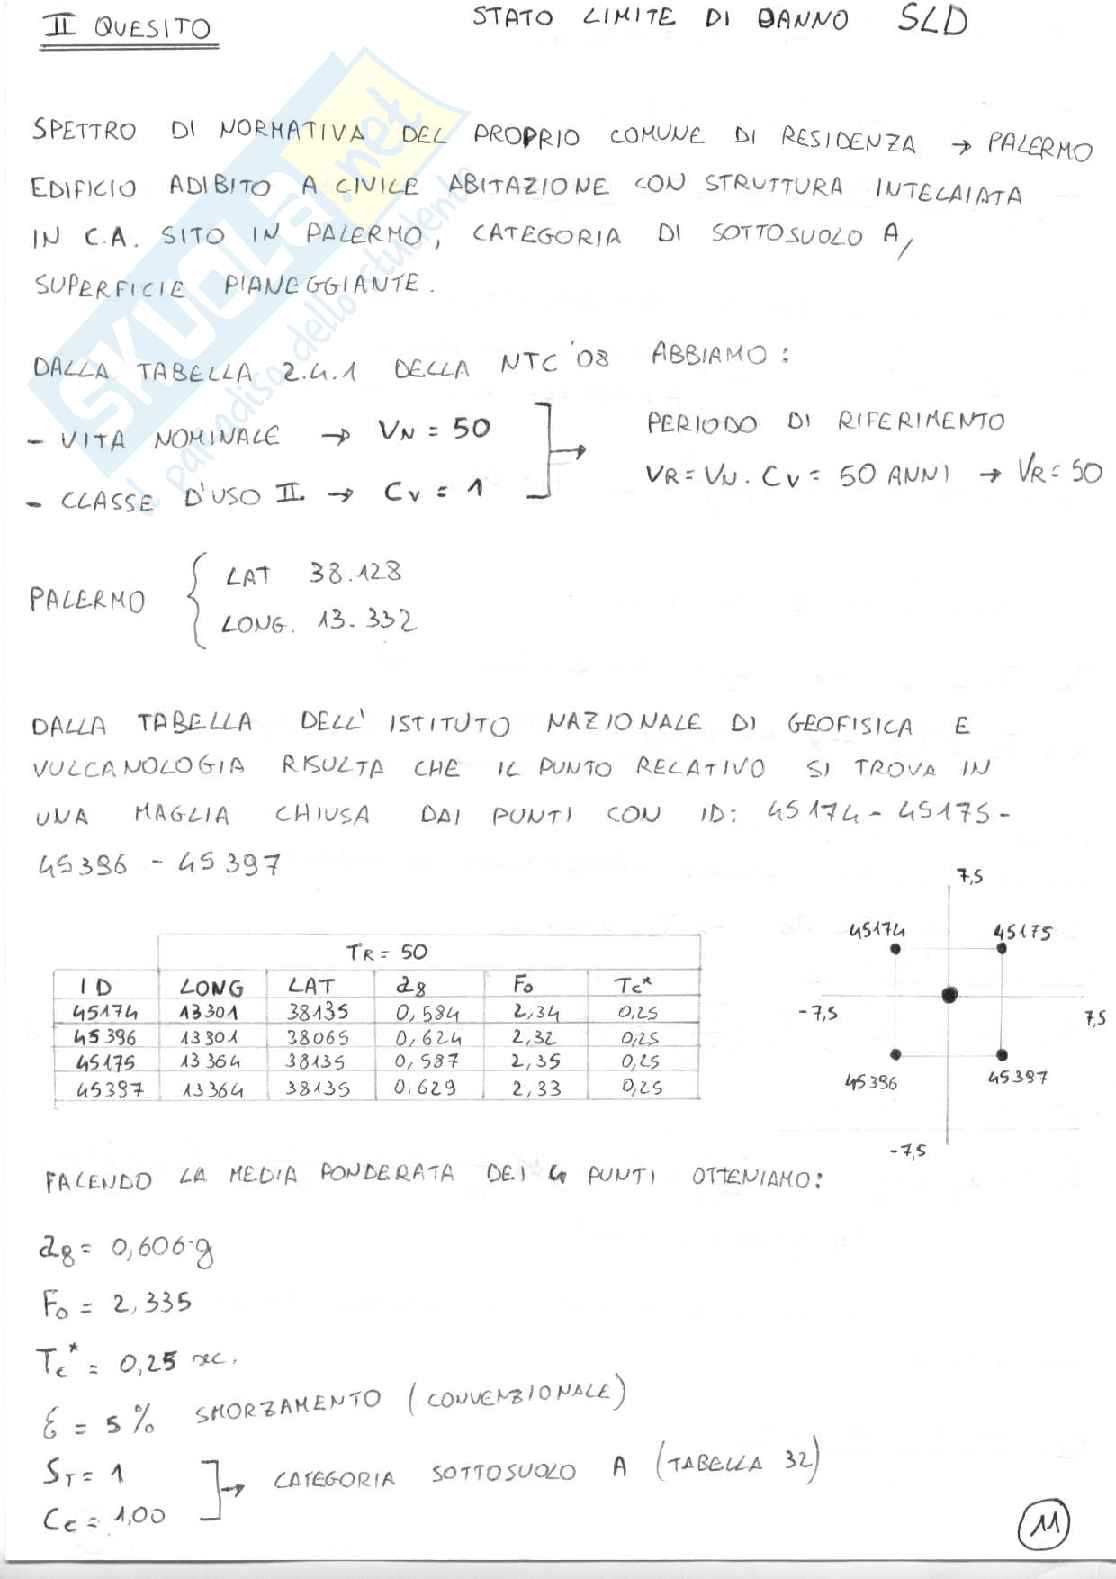 II QUESITO
STATO LIMITE DI DANNO SLD
SPETTRO DI NORMATIVA DEL PROPRIO COMUNE DI RESIDENZA → PALERMO
EDIFICIO ADIBITO A CIVILE ABITAZIONE CON STRUTTURA INTELAIATA
IN C.A. SITO IN PALERMO, CATEGORIA DI SOTTOSUOLO A,
SUPERFICIE PIANEGGIANTE.
DALLA TABELLA 2.4.1 DELLA NTC '08 ABBIAMO:
- VITA NOMINALE → VN = 50
- CLASSE D'USO II. → CV = 1
PERIODO DI RIFERIMENTO
VR = VN . CV = 50 ANNI → VR = 50
PALERMO
LAT 38.128
LONG. 13.332
DALLA TABELLA DELL' ISTITUTO NAZIONALE DI GEOFISICA E
VULCANOLOGIA RISULTA CHE IL PUNTO RELATIVO SI TROVA IN
UNA MAGLIA CHIUSA DAI PUNTI CON ID: 45174 - 45175 -
45396 - 45397
TR = 50
ID LONG LAT ag F0 Tc*
45174 13301 38135 0,584 2,34 0,25
45396 13301 38065 0,624 2,32 0,25
45175 13364 38135 0,587 2,35 0,25
45397 13364 38135 0.629 2,33 0,25
7,5
45174 45175
-7,5 7,5
45396 45397
-7,5
FACENDO LA MEDIA PONDERATA DEI 4 PUNTI OTTENIAMO:
ag = 0,606·g
F0 = 2,335
Tc* = 0,25 sec.
ξ = 5% SMORZAMENTO (CONVENZIONALE)
ST = 1
CC = 1,00
CATEGORIA SOTTOSUOLO A (TABELLA 32)
11
SKUOLA.net
il paradiso dello studente